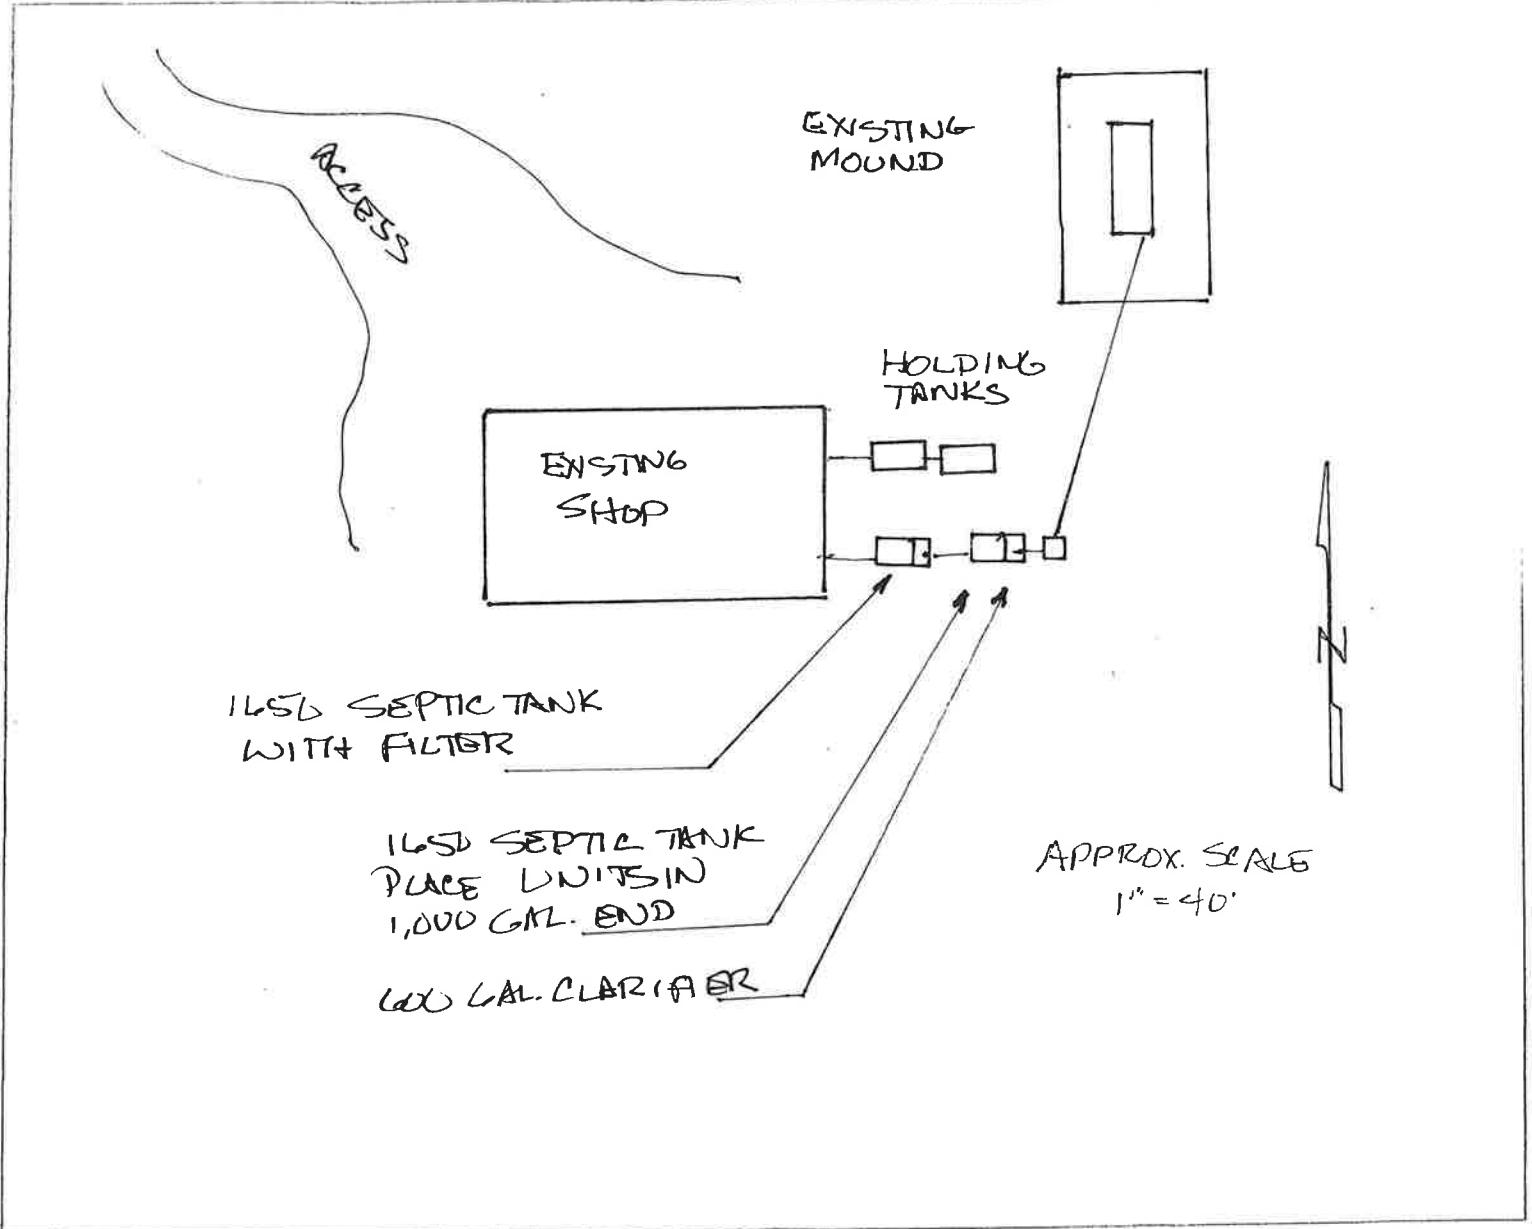 EXISTING
MOUND
ACCESS
HOLDING
TANKS
EXISTING
SHOP
N
1650 SEPTIC TANK
WITH FILTER
1650 SEPTIC TANK
PLACE UNITS IN
1,000 GAL. END
600 GAL. CLARIFIER
APPROX. SCALE
1" = 40'